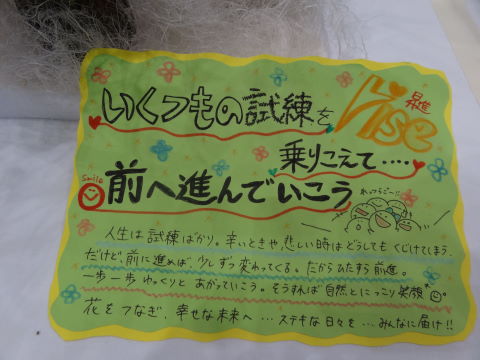 いくつもの試練を
rise
昇進
乗りこえて‥‥
smile
前へ進んでいこう
れっつらごー!!
人生は試練ばかり。辛いときや悲しい時はどうしてもくじけてしまう。
だけど、前に進めば、少しずつ変わってくる。だからひたすら前進。
一歩一歩ゆっくりとあがっていこう。そうすれば自然とにっこり笑顔
花をつなぎ、幸せな未来へ…ステキな日々を…みんなに届け!!